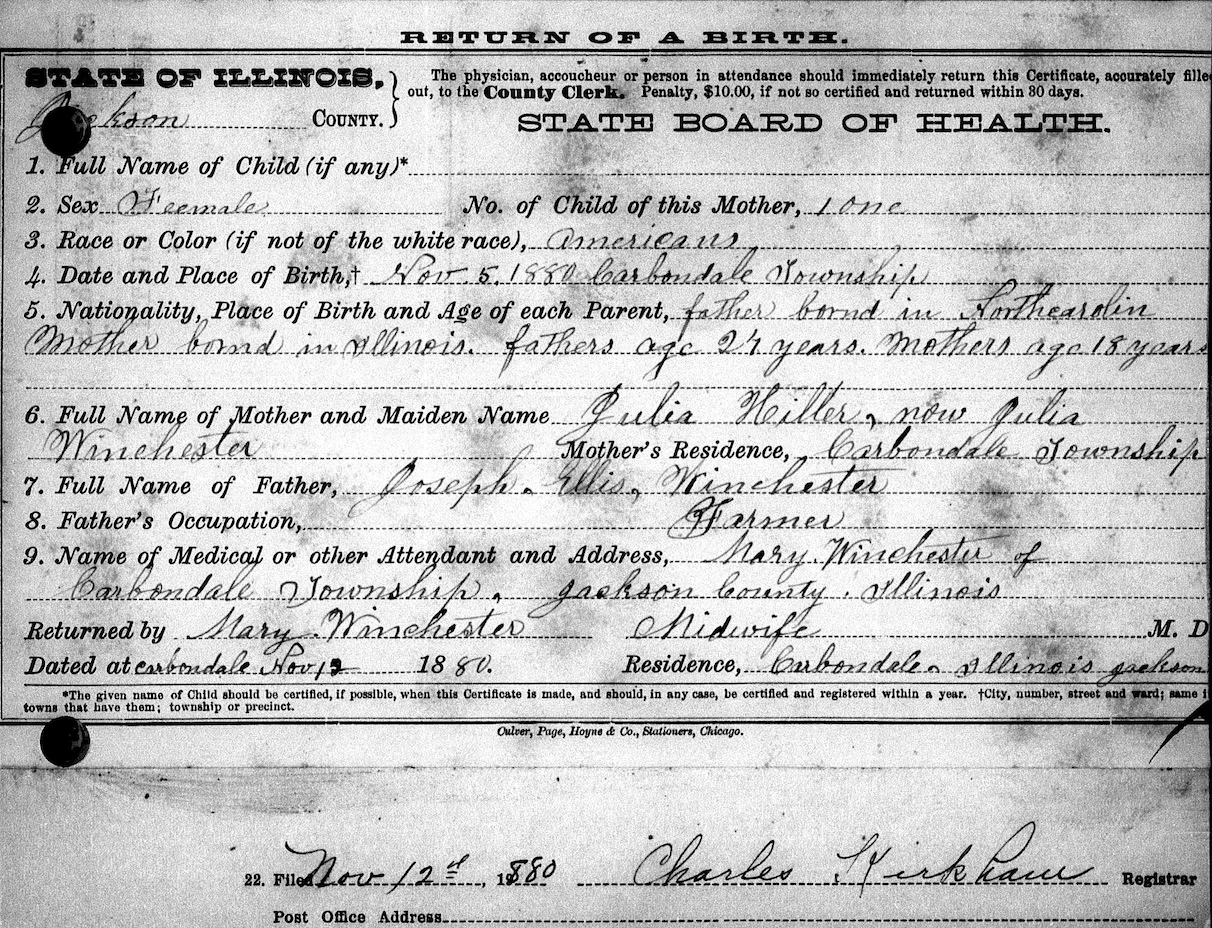 RETURN OF A BIRTH.
STATE OF ILLINOIS,
The physician, accoucheur or person in attendance should immediately return this Certificate, accurately fille
out, to the County Clerk. Penalty, $10.00, if not so certified and returned within 30 days.
Jackson COUNTY.
STATE BOARD OF HEALTH.
1. Full Name of Child (if any)*
2. Sex Feemale No. of Child of this Mother, 1 one
3. Race or Color (if not of the white race), Americans
4. Date and Place of Birth,† Nov. 5. 1880 Carbondale Township
5. Nationality, Place of Birth and Age of each Parent, father bornd in Northcarolin
Mother bornd in Illinois. fathers age years. Mothers age 18 years
6. Full Name of Mother and Maiden Name Julia Hiller, now Julia
Winchester Mother's Residence, Carbondale Township
7. Full Name of Father, Joseph. Ellis, Winchester
8. Father's Occupation, Farmer
9. Name of Medical or other Attendant and Address, Mary. Winchester of
Carbondale Township, Jackson County. Illinois
Returned by Mary. Winchester Midwife M. D
Dated at carbondale Nov 12 1880. Residence, Carbondale. Illinois Jackson
*The given name of Child should be certified, if possible, when this Certificate is made, and should, in any case, be certified and registered within a year. †City, number, street and ward; same i
towns that have them; township or precinct.
Culver, Page, Hoyne & Co., Stationers, Chicago.
22. Filed Nov 12th, 1880 Charles Kirkham Registrar
Post Office Address